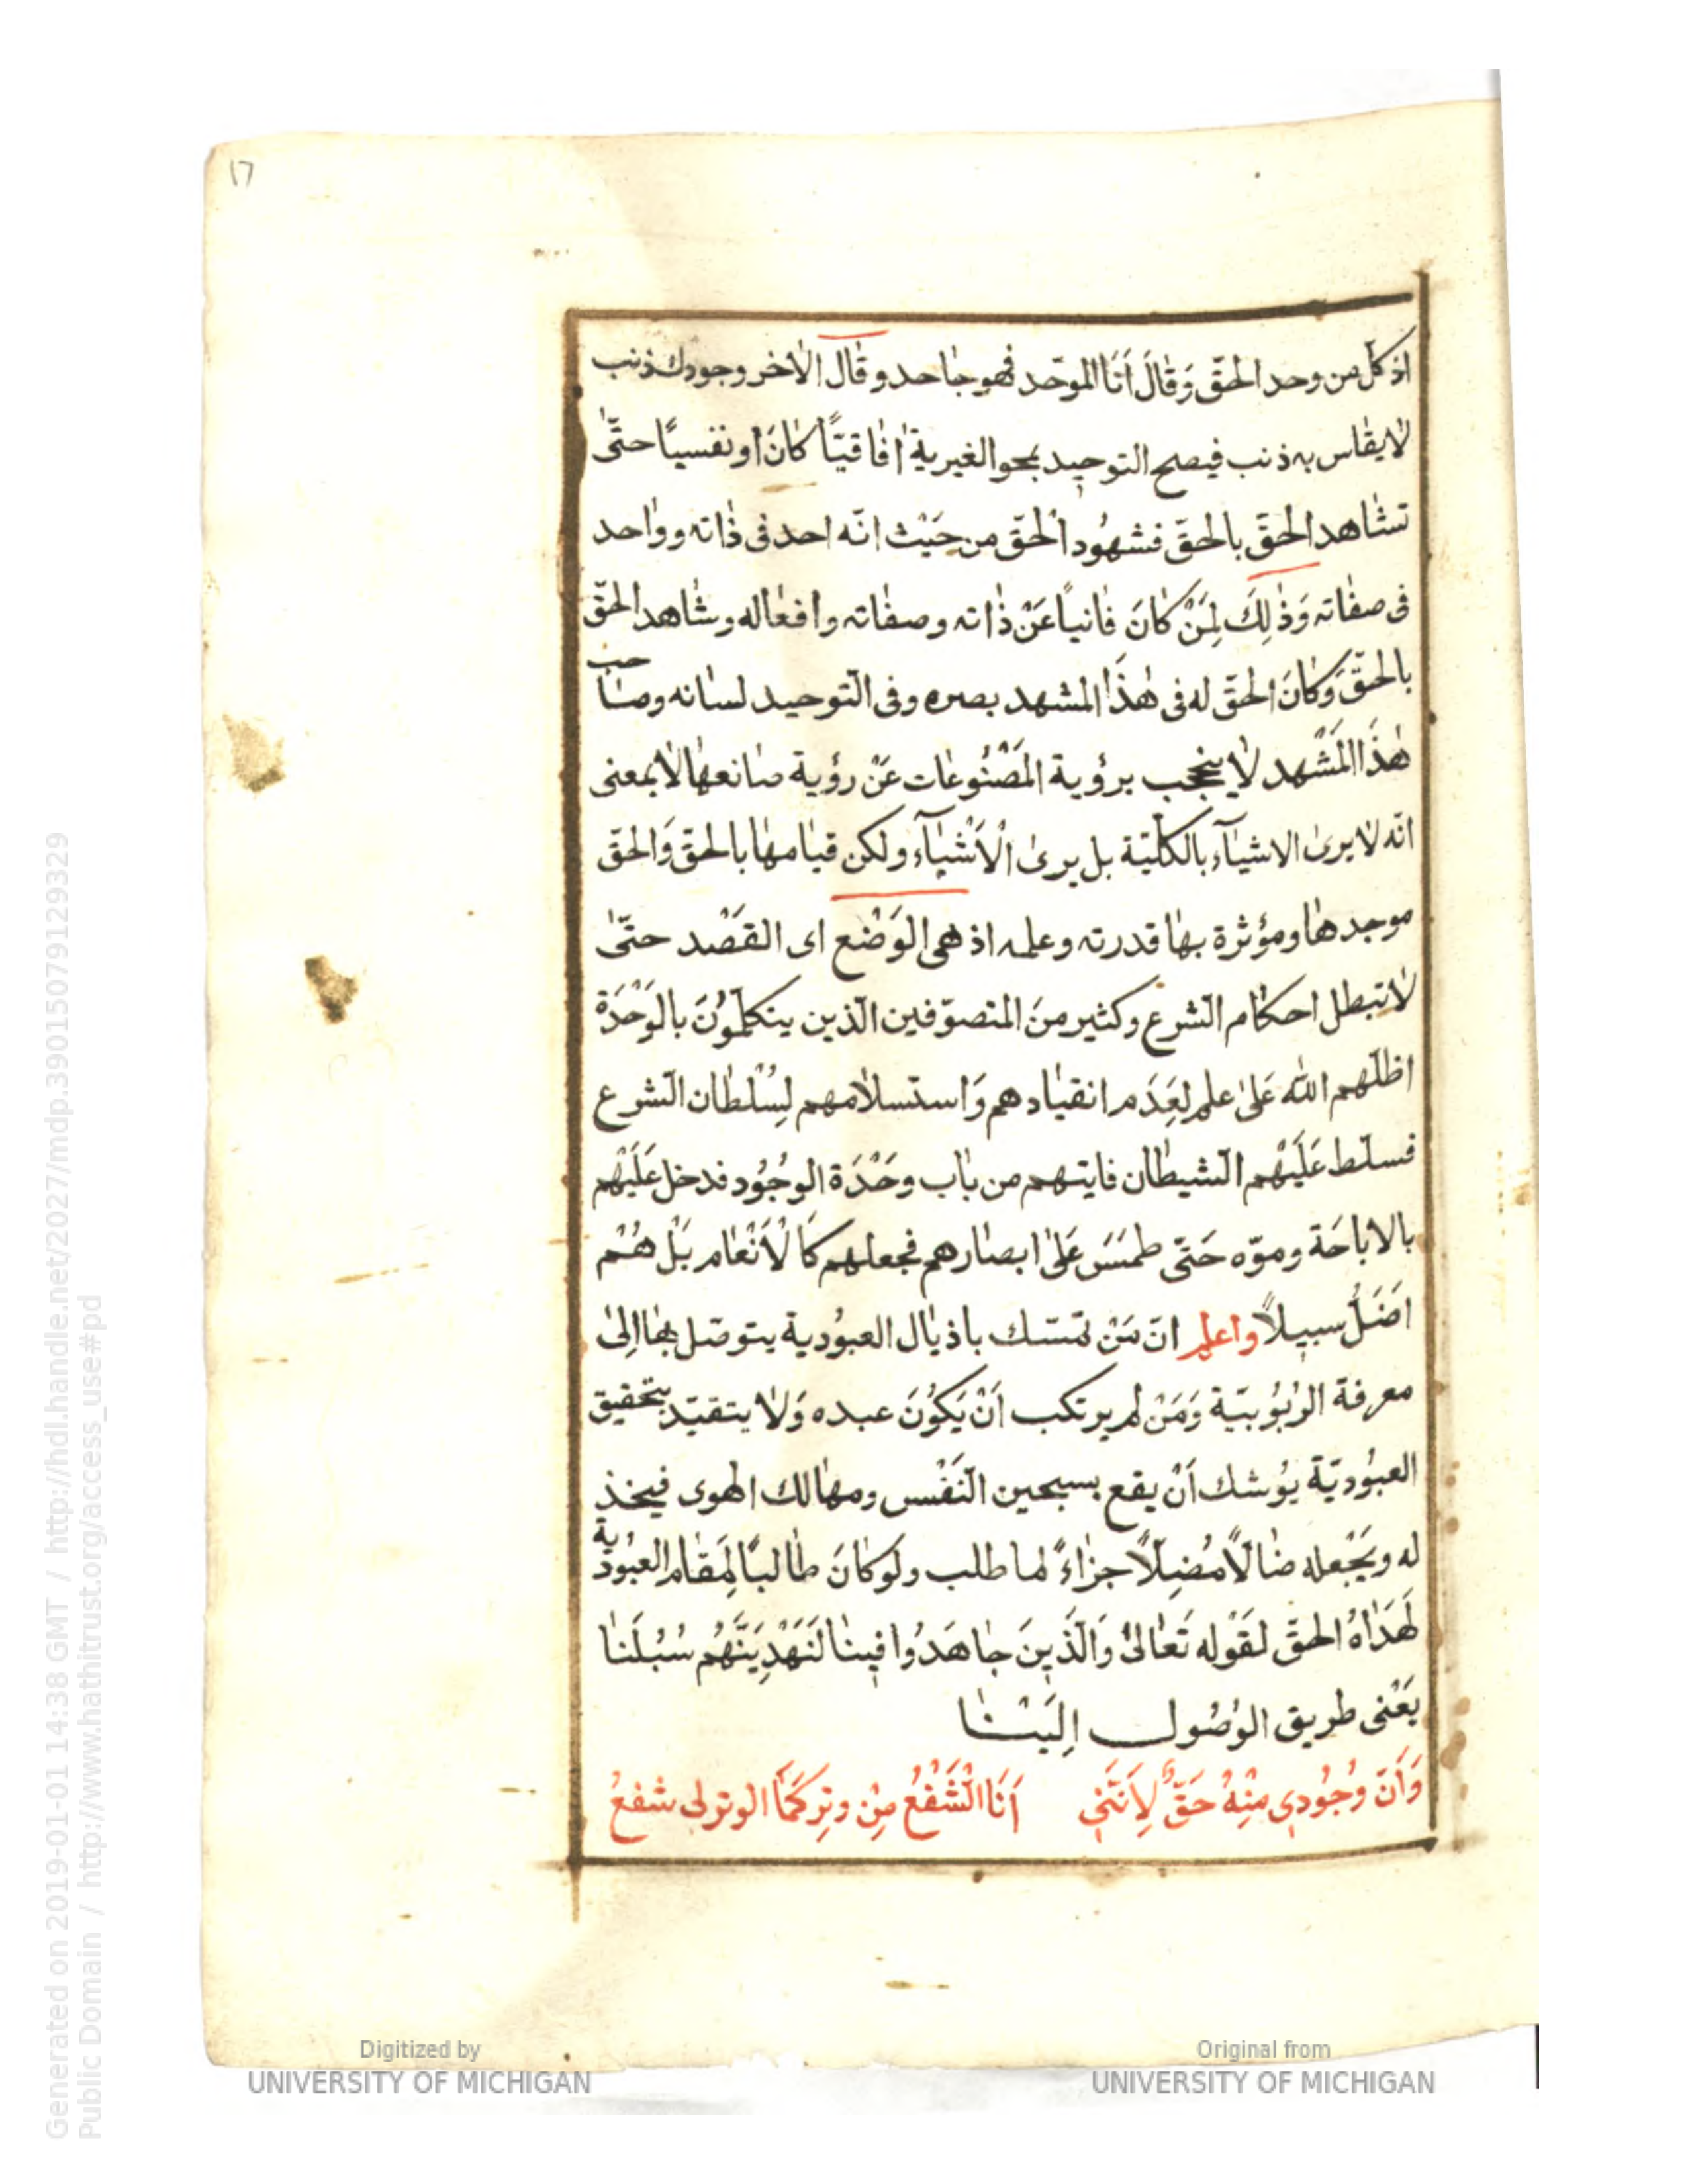 ١٦
اذ كلّ من وحد الحقّ وَقٰالَ اَنَا الموحّد فهو جٰاحد وقٰال الاٰخر وجودك ذنب
لاٰيقٰاس به ذنب فيصح التوحيد بمحو الغيرية اٰفٰاقيّاً كٰانَ او نفسيًا حتّٰى
تشٰاهد الحقّ بالحقّ فشهُود الْحقّ من حَيْث انّه احد فى ذٰاته وواٰحد
فى صفٰاته وَذٰلِكَ لِمَنْ كٰانَ فٰانياً عَنْ ذٰاته وصفٰاته وافعٰاله وشٰاهد الحقّ
بالحقّ وَكٰانَ الحقّ له فى هٰذَا المشهد بصره وفى التّوحيد لسٰانه وصٰاحب
هٰذَا الْمَشْهد لاٰ ينحجب برؤية المَصْنُوعٰات عَنْ رؤية صٰانعهٰا لاٰ بمعنى
انّه لاٰ يرىٰ الاشيٰآء بالكلّيّة بل يرىٰ الْاَشْيٰآء ولكن قيٰامهٰا بالحقّ وَالحقّ
موجدهٰا ومؤثرة بهٰا قدرته وعلمه اذ هى الوَضْع اى القَصْد حتّٰى
لاٰتبطل احكٰام الشّرع وكثير منَ المتصوّفين الّذين يتكلّمُونَ بالوَحْدَة
اظلّهم الله عَلىٰ علم لِعَدَم انقيٰادهم وَاستسلاٰمهم لِسُلْطٰان الشّرع
فسلّط عَلَيْهم الشّيطٰان فايتهم من بٰاب وحْدَة الوجُوُد فدخل عَلَيْهم
بالاباحَة وموّه حَتّى طمسَ عَلىٰ ابصٰارهم فجعلهم كَالْاَنْعٰام بَلْ هُمْ
اَضَلُّ سبيلاً واعلم انّ مَنْ تمسّك باذيٰال العبوُدية يتوصّل بهٰا اِلىٰ
معرفة الرُبُوُبيّة وَمَنْ لم يرتكب اَنْ يَكوُنَ عبده وَلاٰ يتقيّد بتحقيق
العبوُديّة يوُشك اَنْ يقع بسجين النّفْس ومهٰالك الهوى فيخذ
له ويَجْعله ضٰالاًّ مُضِلاًّ جزٰاءً لما طلب ولو كٰانَ طٰالبًا لِمَقٰام العبوُدية
لَهَدٰاهُ الحقّ لقَوْله تَعٰالىٰ وَالَّذينَ جٰاهَدُوا فينٰا لَنَهْدِيَنَّهُم سُبُلَنٰا
يَعْنى طريق الوُصُول اِلَيْنٰا
وَاَنّ وُجُودي مِنْهُ حَقٌّ لِاَنَّني اَنَا الشَّفْعُ مِنْ وترٍ كَمَا الوتر لى شفعُ
Digitized by
UNIVERSITY OF MICHIGAN
Original from
UNIVERSITY OF MICHIGAN
Generated on 2019-01-01 14:38 GMT / http://hdl.handle.net/2027/mdp.39015079129329
Public Domain / http://www.hathitrust.org/access_use#pd